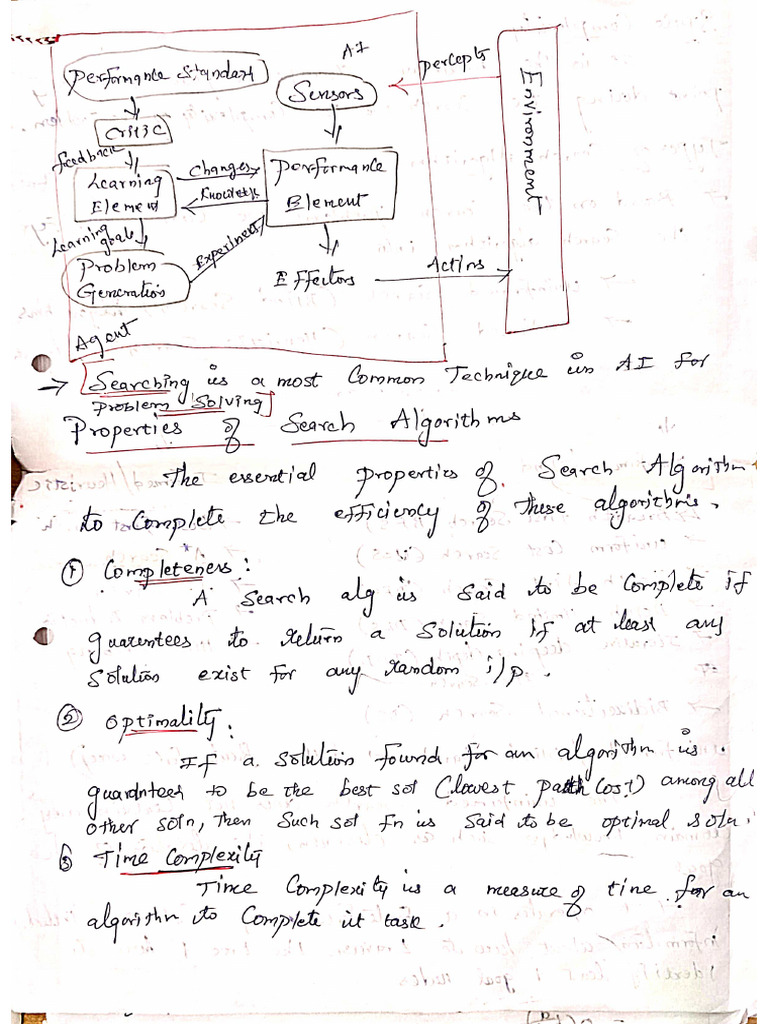 AI
Performance Standard
Sensors
percepts
Environment
Critic
feedback
Learning
Element
Changes
Knowledge
Performance
Element
Learning
goals
Problem
Generation
Experiment
Effectors
Actins
Agent
→ Searching is a most Common Technique in AI for
Problem Solving
Properties of Search Algorithms
The essential properties of Search Algorithm
to Complete the efficiency of these algorithms.
① Completeness:
A Search alg is said to be Complete if
guarentees to return a Solution if at least any
Solution exist for any random i/p.
② Optimality:
If a solution found for an algorithm is
guarantees to be the best sol (lowest path Cost) among all
other soln, then Such sol fn is said to be optimal soln.
③ Time Complexity
Time Complexity is a measure of time for an
algorithm to Complete it task.